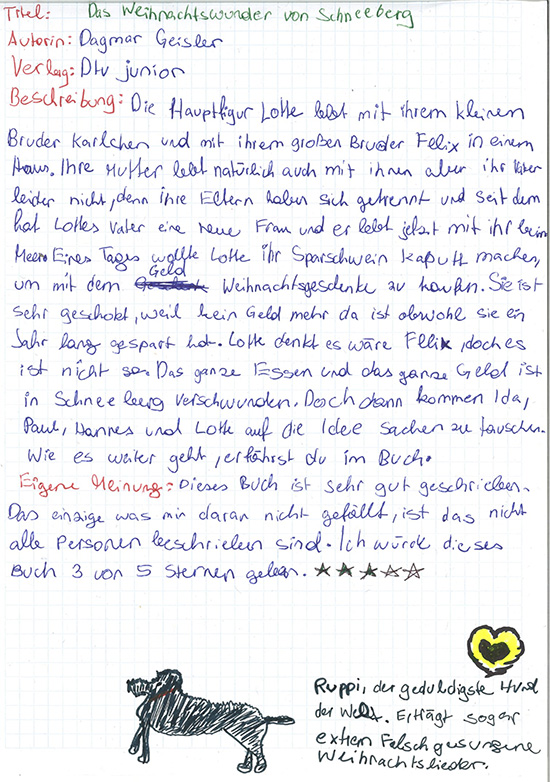 Titel: Das Weihnachtswunder von Schneeberg
Autorin: Dagmar Geisler
Verlag: Dtv junior
Beschreibung: Die Hauptfigur Lotte lebt mit ihrem kleinen
Bruder Karlchen und mit ihrem großen Bruder Felix in einem
Haus. Ihre Mutter lebt natürlich auch mit ihnen aber ihr Vater
leider nicht, denn ihre Eltern haben sich getrennt und seit dem
hat Lottes Vater eine neue Frau und er lebt jetzt mit ihr beim
Meer. Eines Tages wollte Lotte ihr Sparschwein kaputt machen,
um mit dem Geld Weihnachtsgeschenke zu kaufen. Sie ist
sehr geschokt, weil kein Geld mehr da ist obwohl sie ein
Jahr lang gespart hat. Lotte denkt es wäre Felix, doch es
ist nicht so. Das ganze Essen und das ganze Geld ist
in Schneeberg verschwunden. Doch dann kommen Ida,
Paul, Hannes und Lotte auf die Idee Sachen zu tauschen.
Wie es weiter geht, erfährst du im Buch.
Eigene Meinung: Dieses Buch ist sehr gut geschrieben.
Das einzige was mir daran nicht gefällt, ist das nicht
alle Personen beschrieben sind. Ich würde dieses
Buch 3 von 5 Sternen geben.
Ruppi, der geduldigste Hund
der Welt. Erträgt sogar
extrem falsch gesungene
Weihnachtslieder.